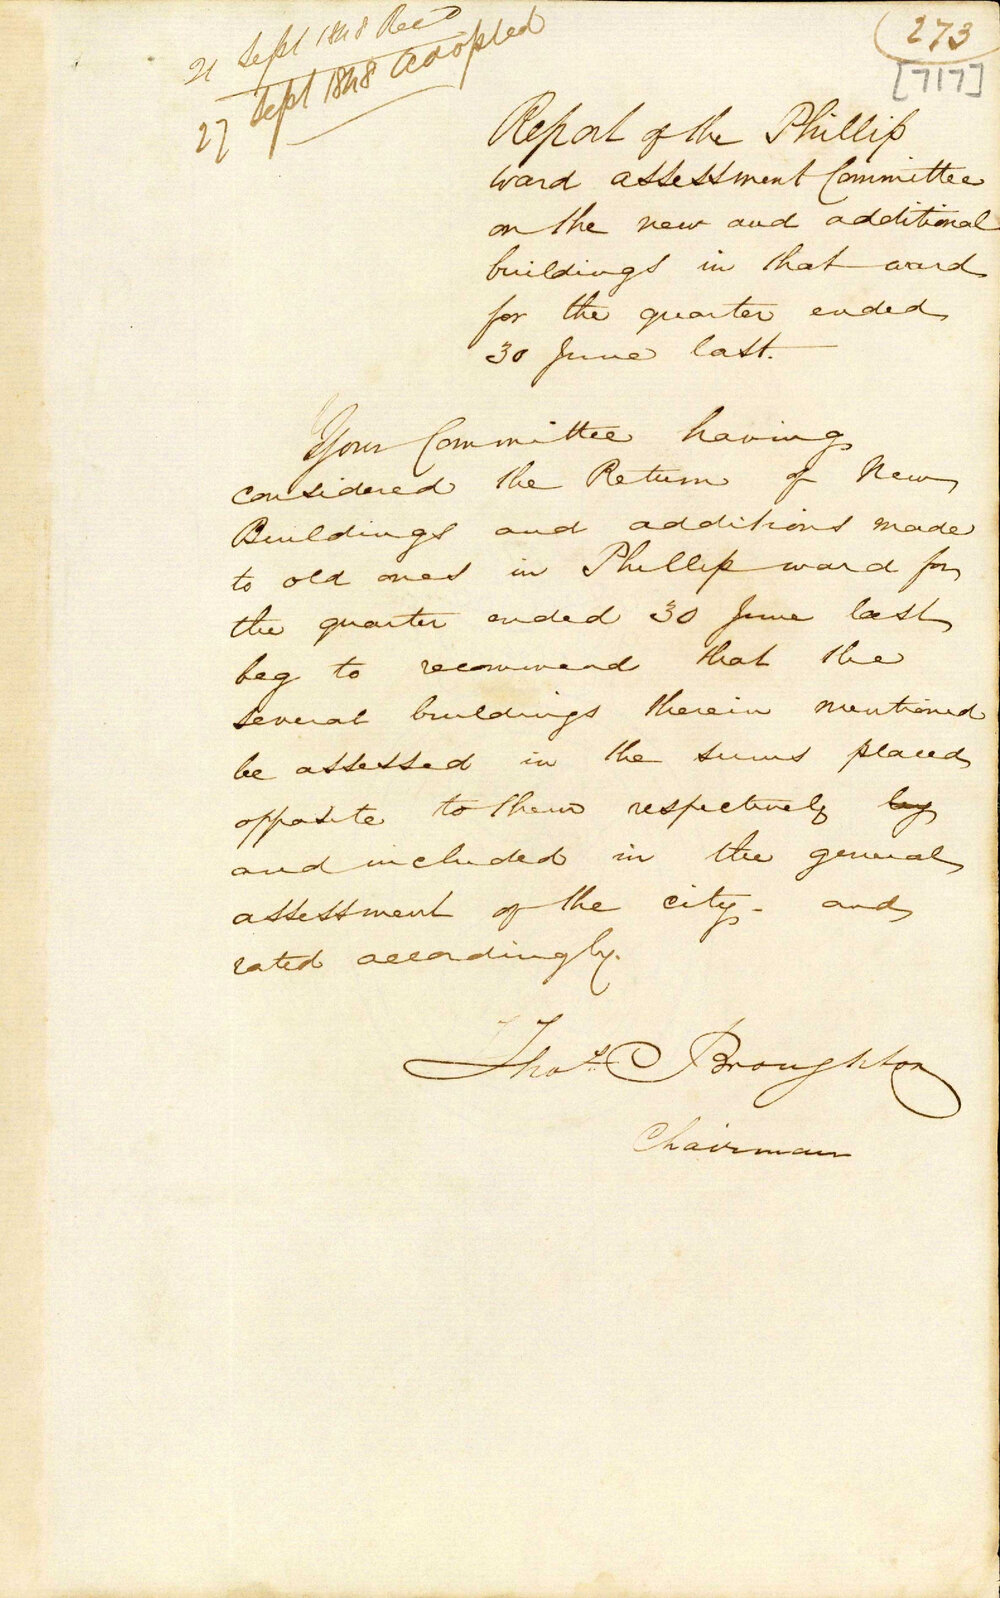 21 Sept 1848 Recd
27 Sept 1848 adopted
273
[717]
Report of the Phillip
ward assessment Committee
on the new and additional
buildings in that ward
for the quarter ended
30 June last.
Your Committee having
considered the Return of New
Buildings and additions made
to old ones in Phillip ward for
the quarter ended 30 June last
beg to recommend that the
several buildings therein mentioned
be assessed in the sums placed
opposite to them respectively by
and included in the general
assessment of the city - and
rated accordingly.
Thos. C Broughton
Chairman